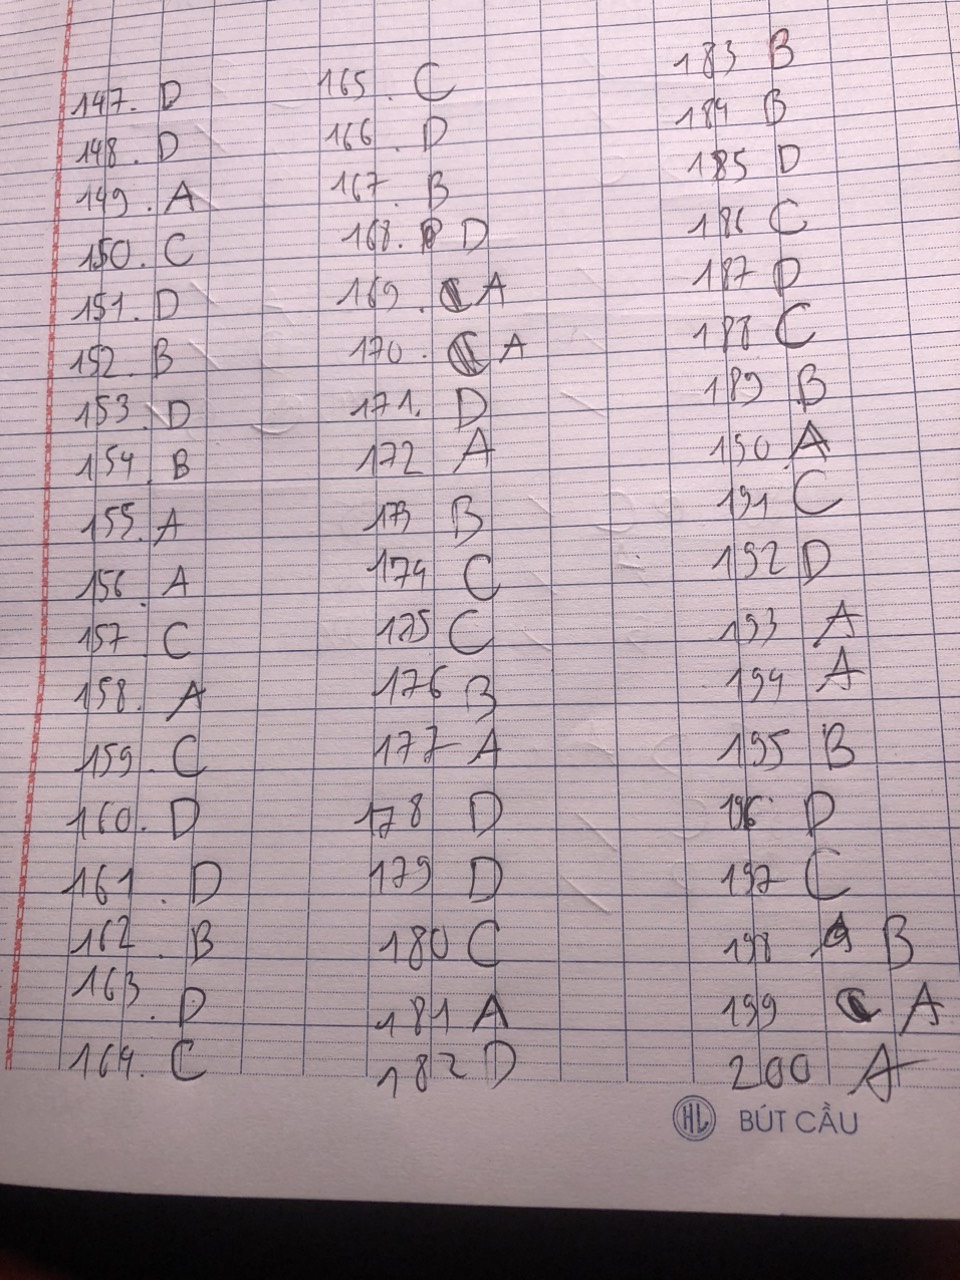 147. D
148. D
149. A
150. C
151. D
152. B
153. D
154. B
155. A
156. A
157. C
158. A
159. C
160. D
161. D
162. B
163. D
164. C
165. C
166. D
167. B
168. D
169. A
170. A
171. D
172 A
173 B
174 C
175 C
176 B
177 A
178 D
179 D
180 C
181 A
182 D
183 B
184 B
185 D
186 C
187 D
188 C
189 B
190 A
191 C
192 D
193 A
194 A
195 B
196 D
197 C
198 B
199 A
200 A
HL BÚT CẦU